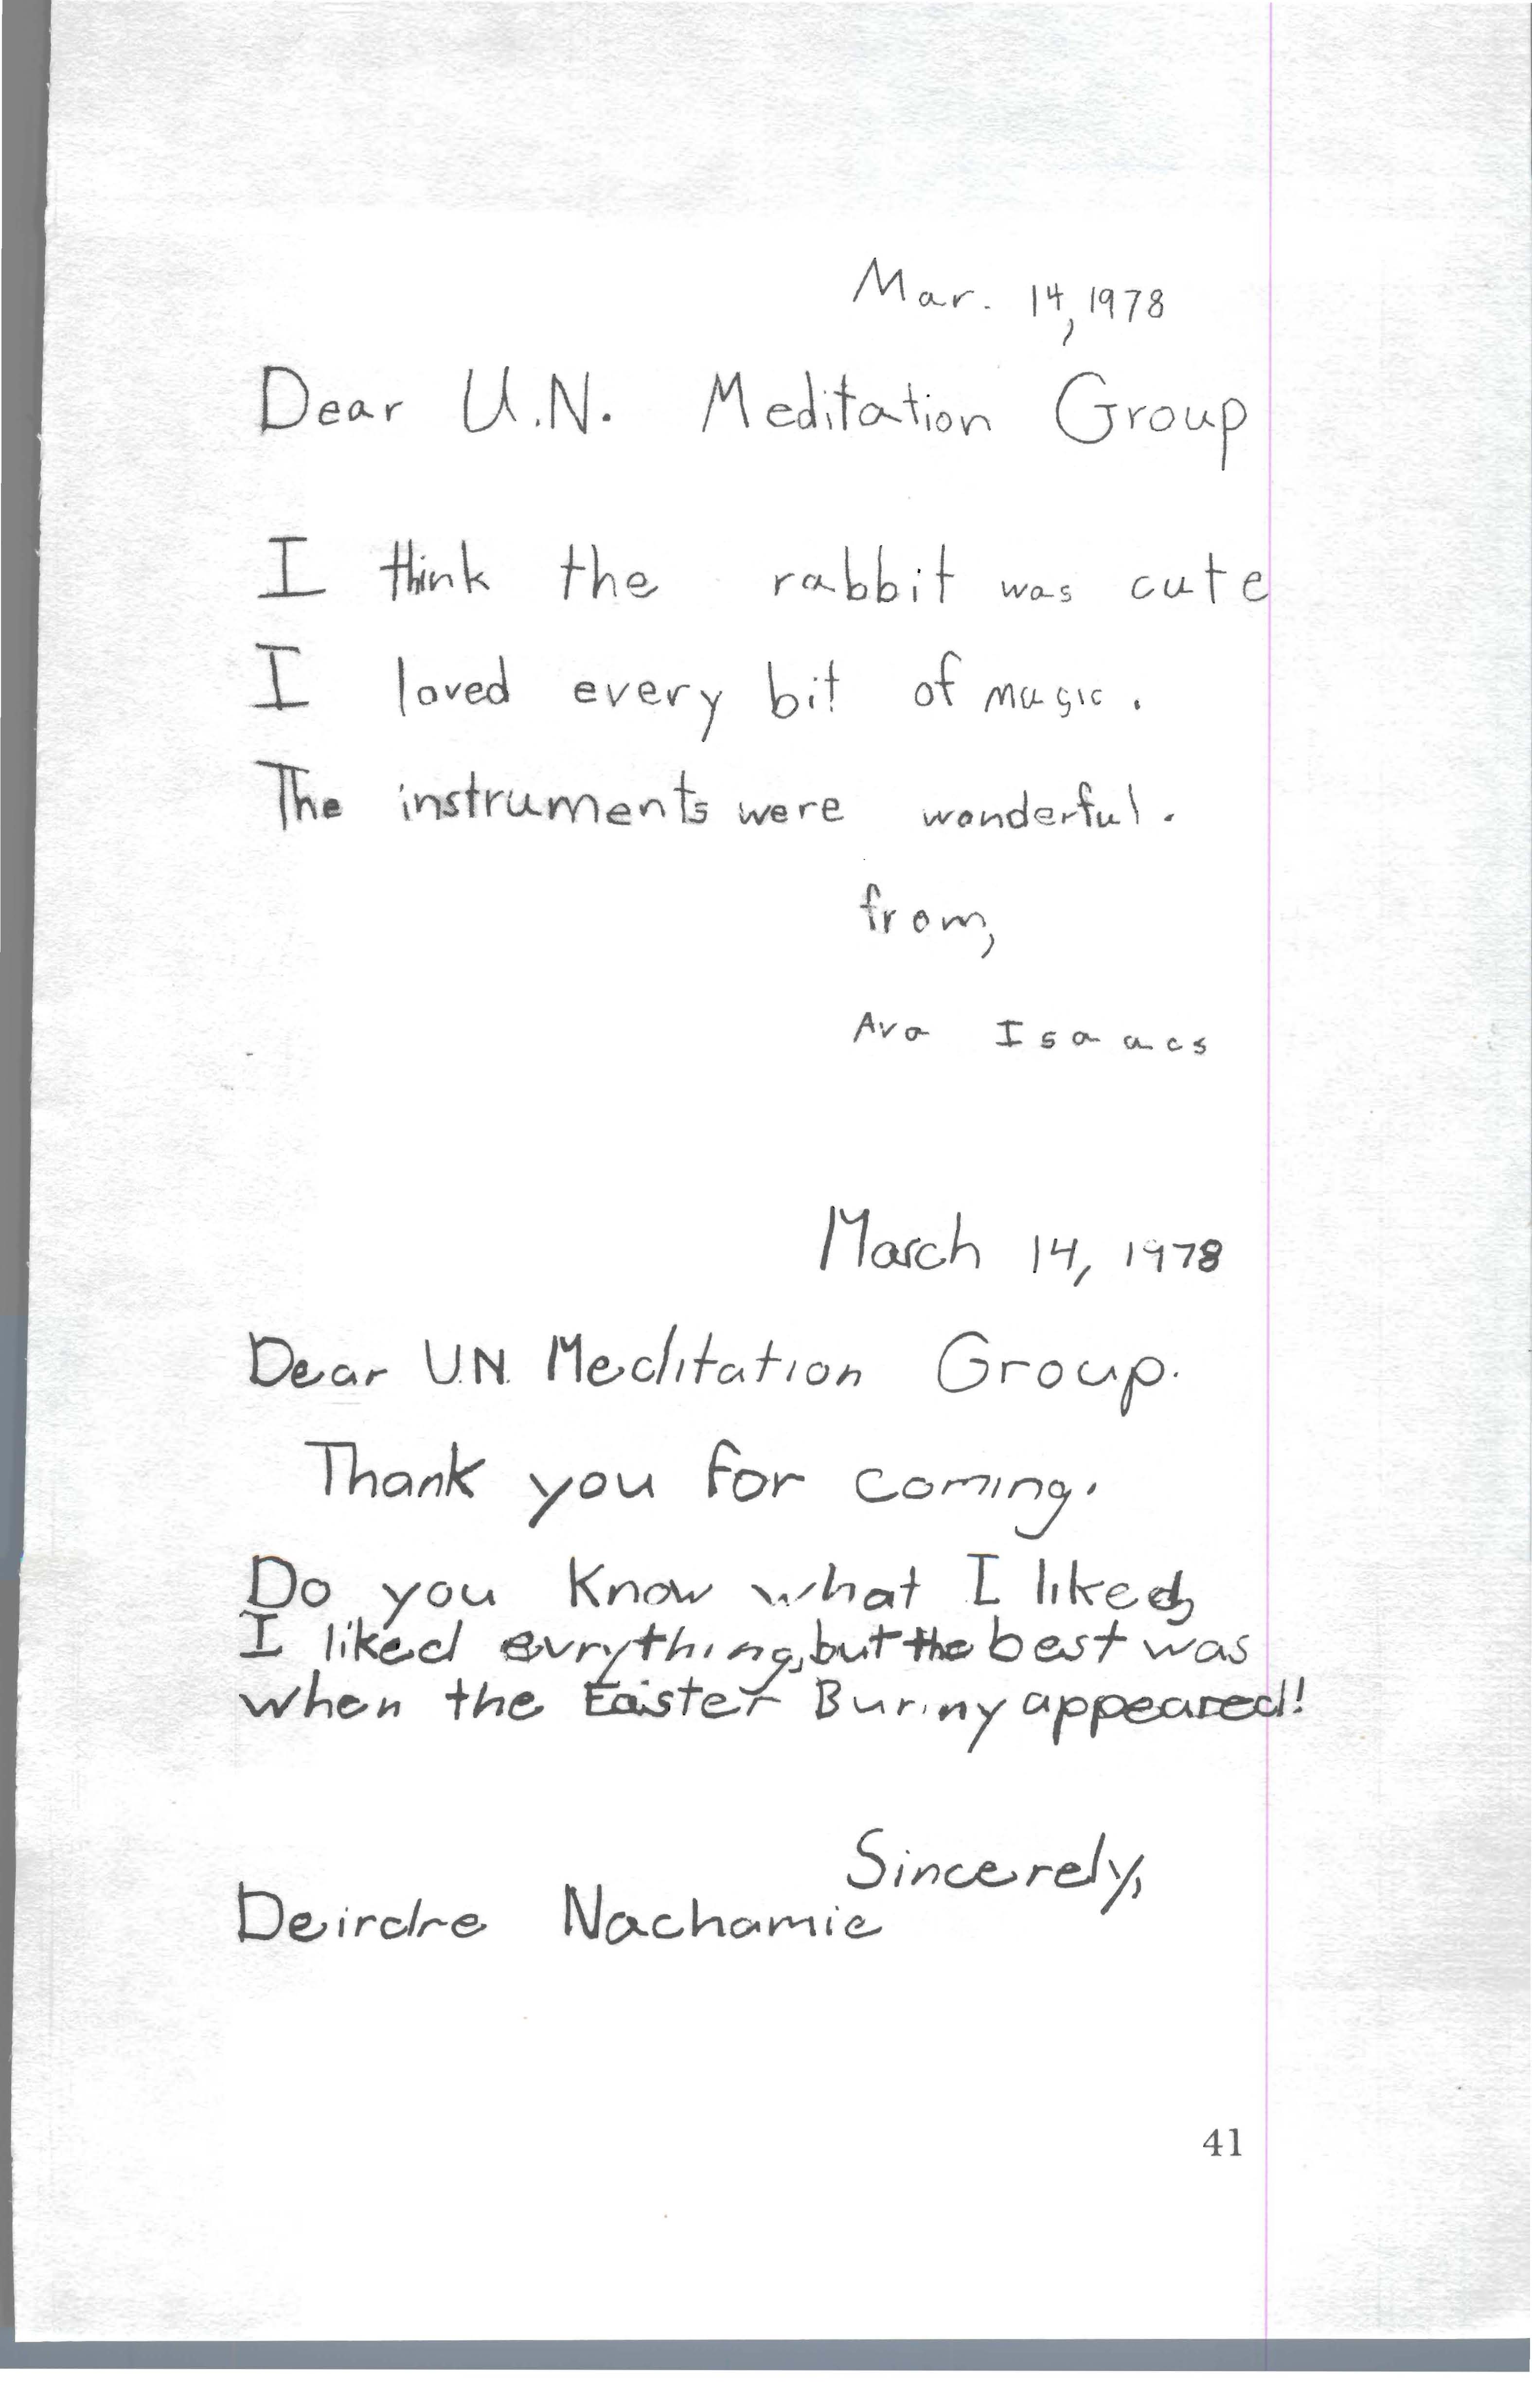 Mar. 14, 1978
Dear U.N. Meditation Group
I think the rabbit was cute
I loved every bit of magic.
The instruments were wonderful.
from,
Ava Isaacs
March 14, 1978
Dear U.N. Meditation Group.
Thank you for coming.
Do you know what I liked,
I liked evrything, but the best was
when the Easter Bunny appeared!
Sincerely,
Deirdre Nachamie
41